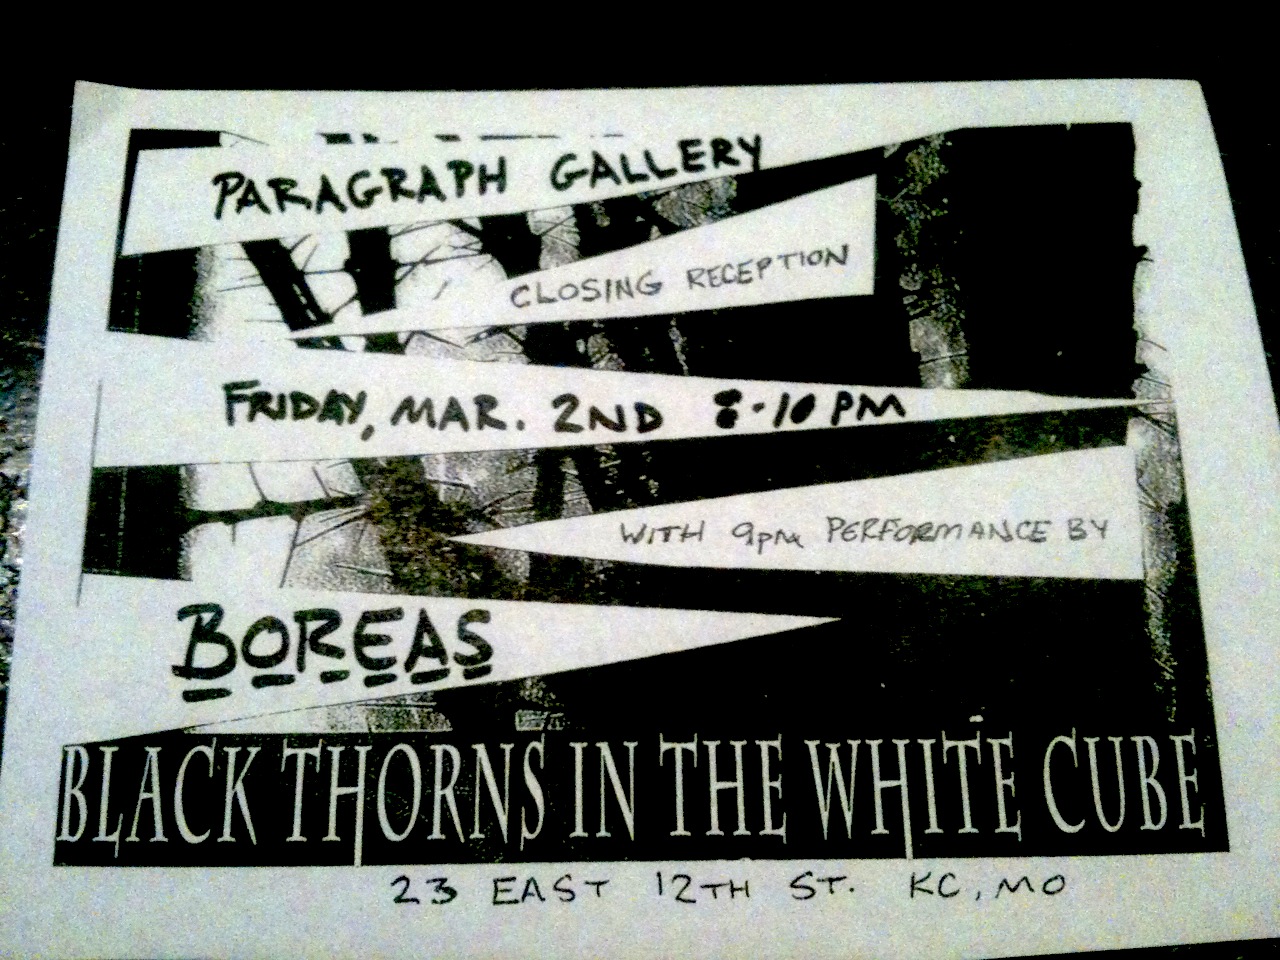 PARAGRAPH GALLERY
CLOSING RECEPTION
FRIDAY, MAR. 2ND 8-10 PM
WITH 9pm PERFORMANCE BY
BOREAS
BLACK THORNS IN THE WHITE CUBE
23 EAST 12TH ST. KC, MO